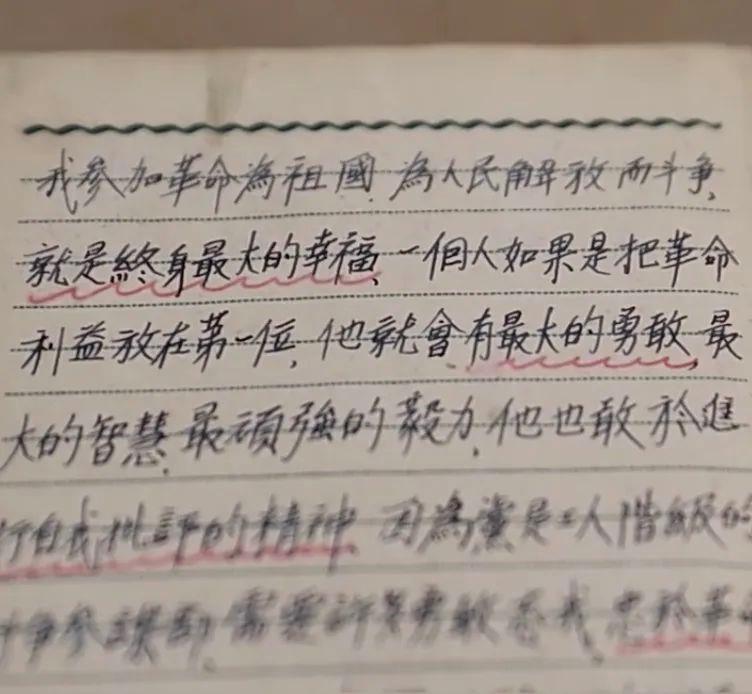 我參加革命為祖國,為人民解放而斗爭,
就是終身最大的幸福,一個人如果是把革命
利益放在第一位,他就會有最大的勇敢,最
大的智慧,最頑強的毅力,他也敢於進
行自我批評的精神,因為黨是工人階級的
爭參謀部,需要許多勇敢忘我,忠於革命